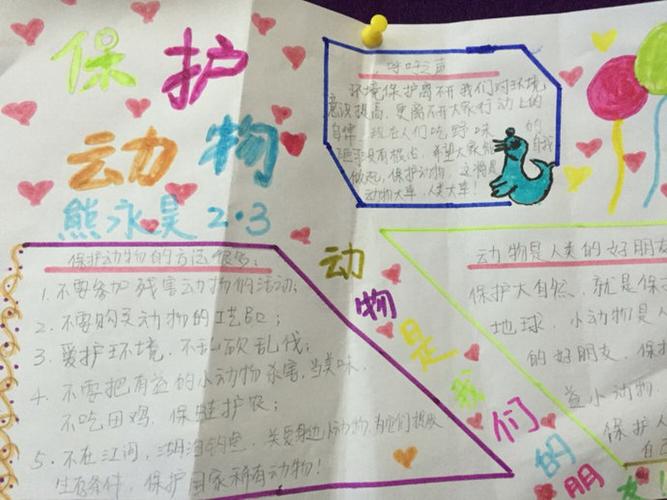 保护
动物
熊永昊 2·3
呼吁之声
环境保护离不开我们对环境
意识提高,更离不开大家行动上的
自律,现在人们吃野味的
做起,保护动物,
动物大军,人类大军!
保护动物的方法很多:
1.不要参加残害动物的活动;
2.不要购买动物的工艺品;
3.爱护环境,不乱砍乱伐;
4.不要把有益的小动物杀害,当美味,
不吃田鸡,保蛙护农;
5.不在江河,湖泊钓鱼,关爱身边小动物,为他们提供
生存条件,保护国家稀有动物!
动物是我们的朋友
动物是人类的好朋友
保护大自然,就是保
地球,小动物是人
的好朋友,保护
益小动物
保护人
自己